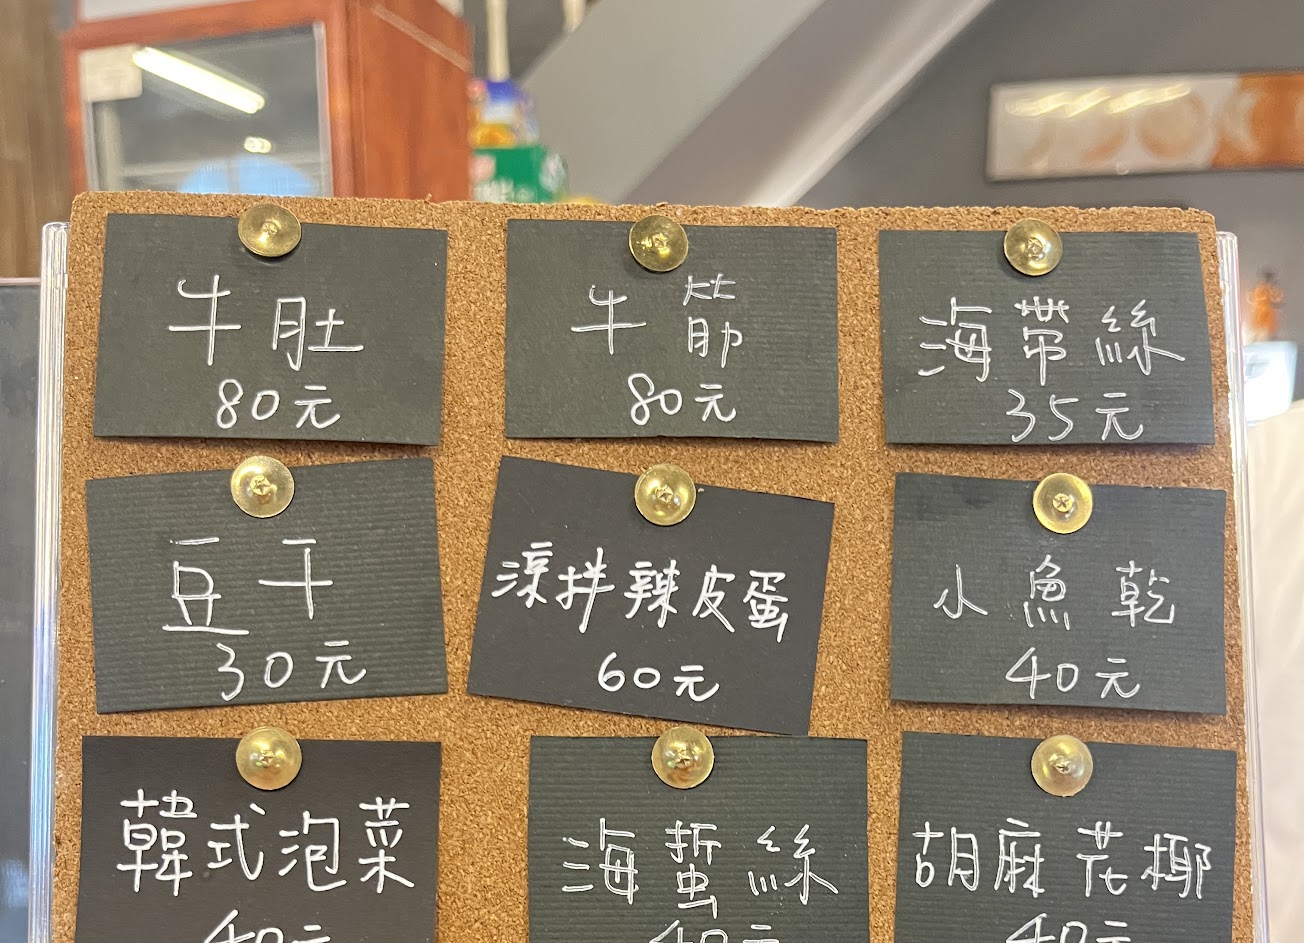 牛肚
80元
牛筋
80元
海帶絲
35元
豆干
30元
涼拌辣皮蛋
60元
小魚乾
40元
韓式泡菜
40元
海蜇絲
40元
胡麻花椰
40元